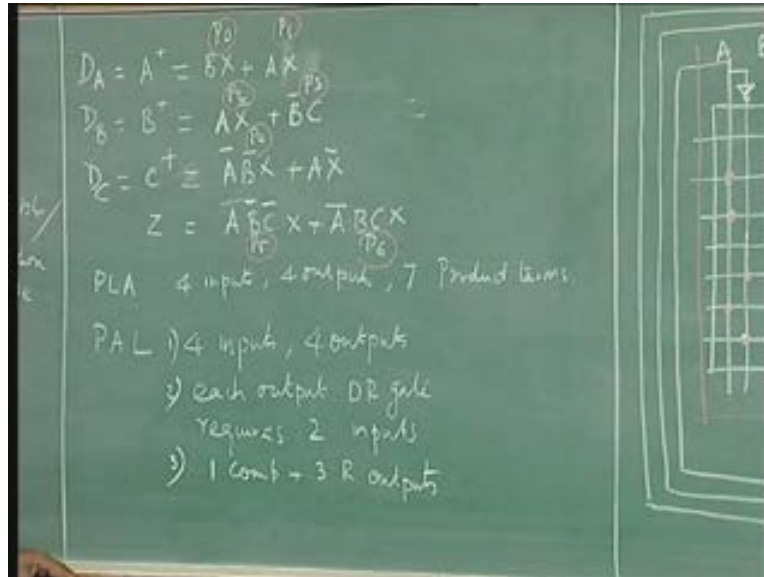 P0 P1
D_A = A⁺ = B̅X + AX
P2 P3
D_B = B⁺ = AX̅ + B̅C
P4
D_C = C⁺ = A̅B̅X + AX̅
Z = A̅B̅C̅X + A̅BCX
P5 P6
PLA 4 inputs, 4 output, 7 Product terms
PAL 1) 4 inputs, 4 outputs
2) each output OR gate
requires 2 inputs
3) 1 comb + 3 R outputs
A B